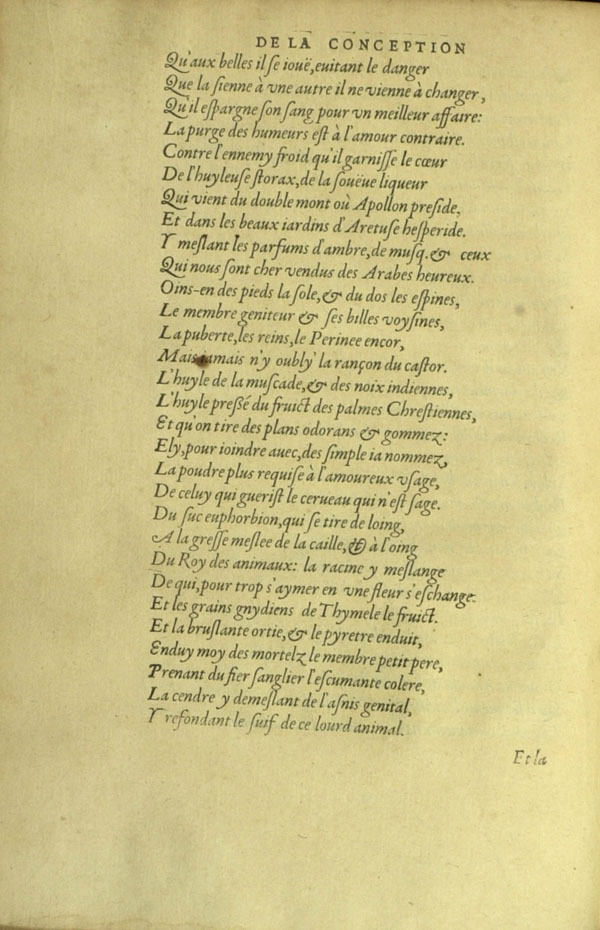 DE LA CONCEPTION
Qu'aux belles il se iouë, euitant le danger
Que la sienne à vne autre il ne vienne à changer,
Qu'il espargne son sang pour vn meilleur affaire:
La purge des humeurs est à l'amour contraire.
Contre l'ennemy froid qu'il garnisse le cœur
De l'huyleuse storax, de la souëue liqueur
Qui vient du double mont où Apollon preside,
Et dans les beaux iardins d'Aretuse hesperide.
Y meslant les parfums d'ambre, de musq. & ceux
Qui nous sont cher vendus des Arabes heureux.
Oins-en des pieds la sole, & du dos les espines,
Le membre geniteur & ses billes voysines,
La puberte, les reins, le Perinee encor,
Mais iamais n'y oubly' la rançon du castor.
L'huyle de la muscade, & des noix indiennes,
L'huyle pressé du fruict des palmes Chrestiennes,
Et qu'on tire des plans odorans & gommez:
Ely, pour ioindre auec, des simple ia nommez,
La poudre plus requise à l'amoureux vsage,
De celuy qui guerist le cerueau qui n'est sage.
Du suc euphorbion, qui se tire de loing,
A la gresse meslee de la caille, & à l'oing
Du Roy des animaux: la racine y meslange
De qui, pour trop s'aymer en vne fleur s'eschange.
Et les grains gnydiens de Thymele le fruict.
Et la bruslante ortie, & le pyretre enduit,
Enduy moy des mortelz le membre petit pere,
Prenant du fier sanglier l'escumante colere,
La cendre y demeslant de l'asnis genital,
Y refondant le suif de ce lourd animal.
Et la